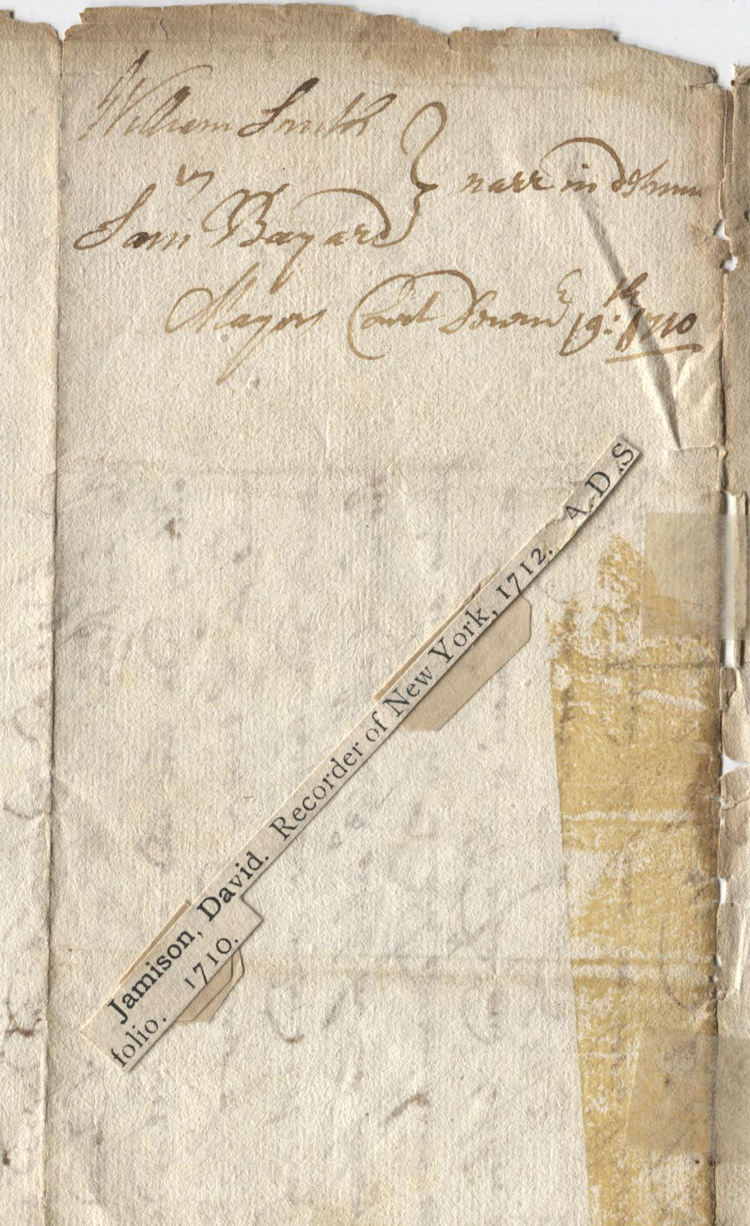 William Smith
vs
Sam Bayard
narr in
Mayors Court 19: 1710
Jamison, David. Recorder of New York, 1712. A. D. S
folio. 1710.